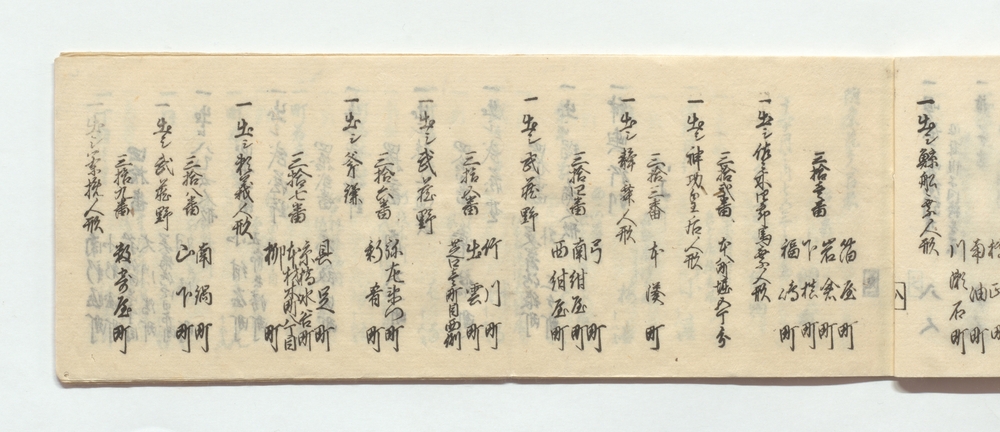 南油町
川瀬石町
一出シ鯨船乗人形
三拾壱番
箔屋町
岩倉町
下槙町
福嶋町
一出シ佐々木四郎馬乗人形
三拾弐番 本八町堀五丁分
一出シ神功皇后人形
三拾三番 本湊町
一出シ静舞人形
弓町
三拾四番 南紺屋町
西紺屋町
一出シ武蔵野
竹川町
三拾五番 出雲町
芝口壱町目西側
一出シ武蔵野
弥左衛門町
三拾六番 新肴町
一出シ斧鎌
具足町
京橋水谷町
三拾七番 本材木町八丁目
柳町
一出シ頼義人形
南鍋町
三拾八番 山下町
一出シ武蔵野
三拾九番 数寄屋町
一出シ茶挽人形